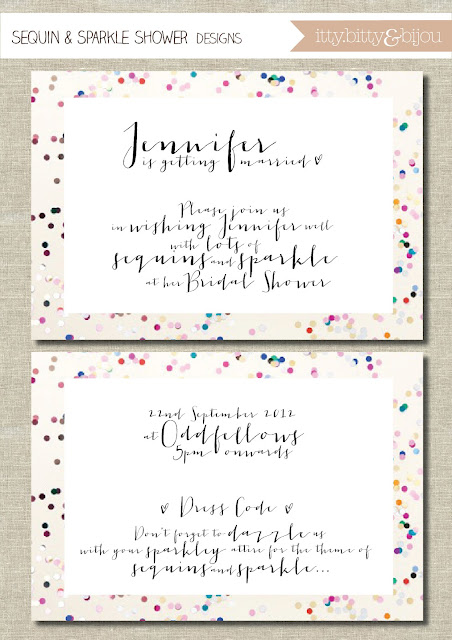 SEQUIN & SPARKLE SHOWER DESIGNS
itty.bitty&bijou
Jennifer
is getting married
Please join us
in wishing Jennifer well
with lots of
sequins and sparkle
at her Bridal Shower
22nd September 2012
at Oddfellows
5pm onwards
Dress Code
Don't forget to dazzle us
with your sparkley attire for the theme of
sequins and sparkle...